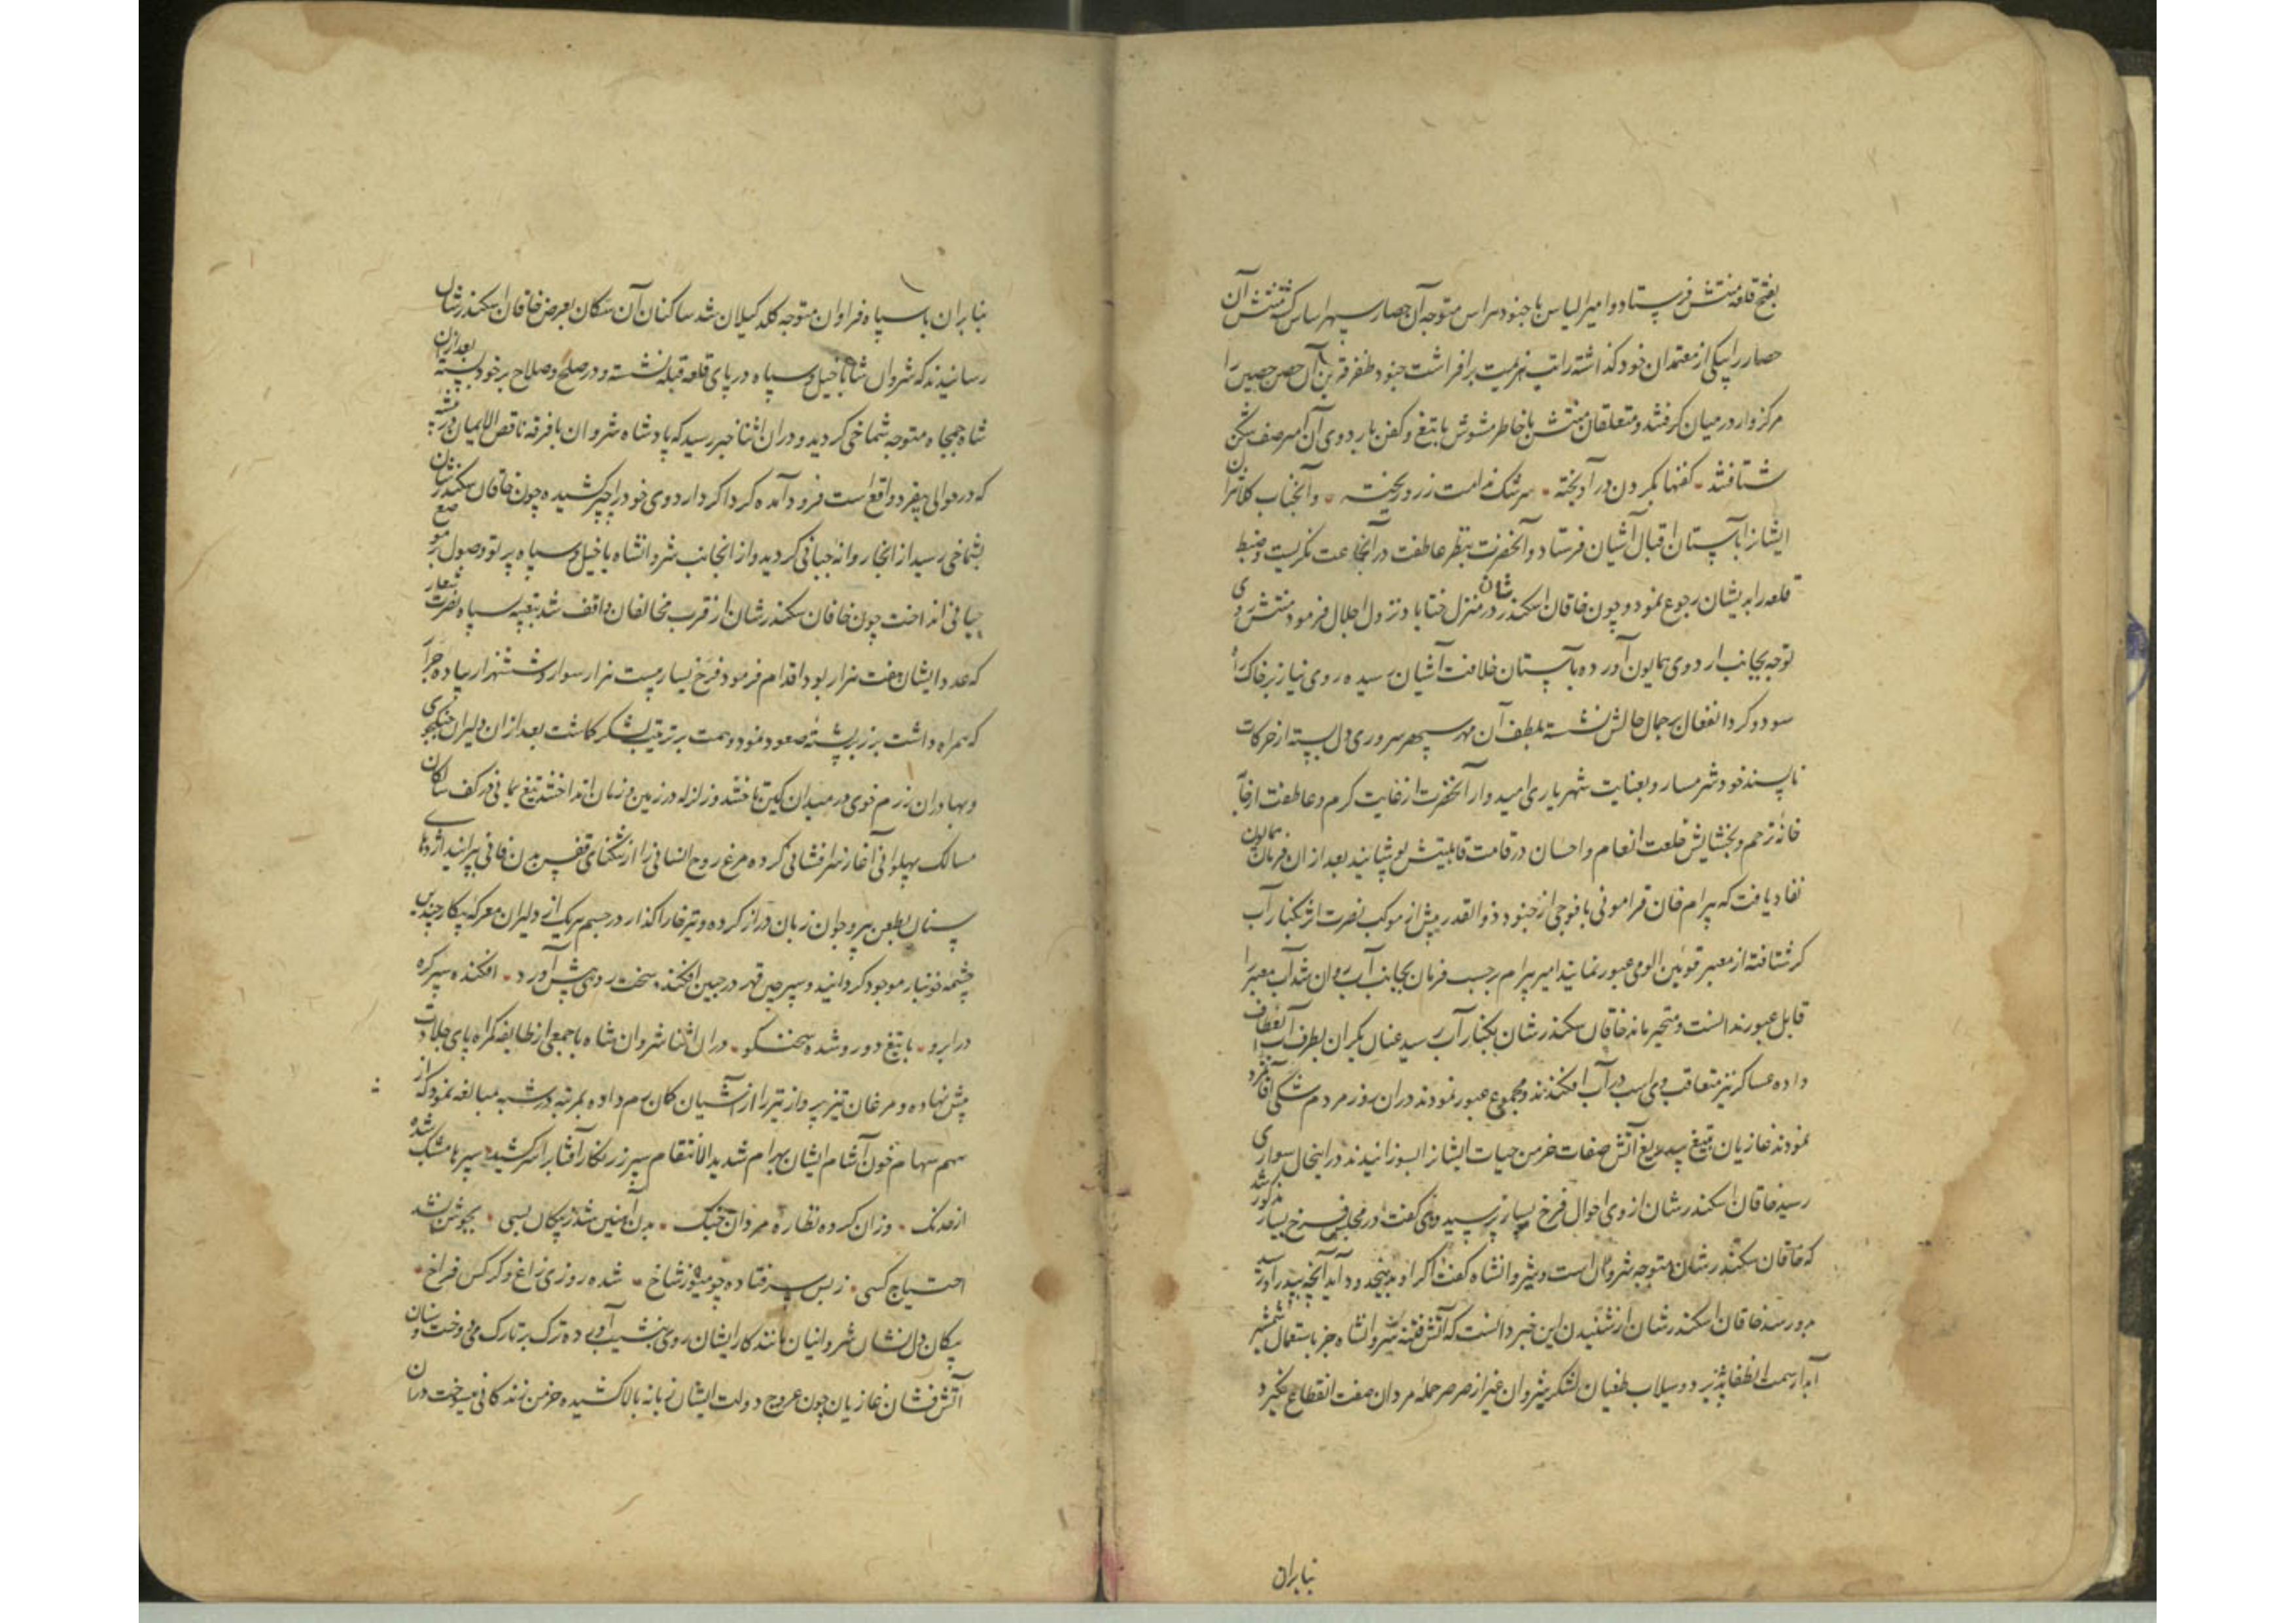 بفتح قلعه منتش فرستاد و امیر الیاس با جنود هراس متوجه آن حصار سپهر اساس کشته منتش آن
حصار را بیکی از معتمدان خود کذاشته رایت هزیمت برافراشت جنود ظفر قرین آن حصن حصین را
مرکزوار در میان کرفتند و متعلقان منتش با خاطر مشوش با تیغ و کفن باردوی آن امیر صف شکن
شتافتند کفنها بکردن در آویخته سرشک ندامت ز رو ریخته و آنجناب کلانتران
ایشانرا بآستان اقبال آشیان فرستاد و آنحضرت بنظر عاطفت در آنجماعت نکریست و ضبط
قلعه را بدیشان رجوع نمود و چون خاقان اسکندر شان در منزل خنتاباد نزول اجلال فرمود منتش روی
توجه بجانب اردوی همایون آورده بآستان خلافت آشیان رسیده روی نیاز بر خاک راه
سود و کرد انفعال بر جمال حالش نشسته بلطف آن مهر سپهر سروری دل بسته از حرکات
ناپسند خود شرمسار و بعنایت شهریاری امیدوار آنحضرت از غایت کرم و عاطفت از
خانه ترحم و بخشایش خلعت انعام و احسان در قامت قابلیتش پوشانید بعد از ان فرمان همایون
نفاد یافت که بیرام خان قرامونی با فوجی از جنود ذو القدر پیش از موکب نصرت اثر بکنار آب
کر شتافته از معبر قوئین الومی عبور نمایند امیر بیرام بر حسب فرمان بجانب آب روان شد آب معبر را
قابل عبور ندانست و متحیر ماند خاقان سکندر شان بکنار آب رسید عنان یکران بطرف آب انعطاف
داده عساکر نیز متعاقب وی اسب در آب افکندند و مجموع عبور نمودند دران روز مردم شکی
نمودند غازیان بتیغ بیدریغ آتش صفات خرمن حیات ایشانرا بسوزانیدند در اینحال سواری
رسید خاقان اسکندر شان از وی احوال فرخ یسار پرسید وی گفت در مجلس فرخ یسار مذکور شد
که خاقان سکندر شان متوجه شروان است و شیروانشاه گفت اکر او بدینحدود آید آنچه بپدر او رسید
برو رسد خاقان اسکندر شان از شنیدن این خبر دانست که آتش فتنه شروانشاه جز باستعمال شمشیر
آبدار سمت انطفا نپذیرد و سیلاب طغیان لشکر شروان غیر از صرصر حمله مردان صفت انقطاع نکیرد
بنابران
بنابران با سپاه فراوان متوجه کلد کیلان شد ساکنان آن مکان بعرض خاقان اسکندر شان
رسانیدند که شروان شاه با خیل و سپاه در پای قلعه قبله نشسته و در صلح و صلاح بر خود بسته بعد ازان
شاه جمجاه متوجه شماخی کردید و دران اثنا خبر رسید که پادشاه شروان با فرقه ناقص الایمان در بیشه
که در حوالی بیقرد واقع است فرود آمده کرداکرد اردوی خود را چپر کشیده چون خاقان سکندر شان
بشماخی رسید از انجا روانه جبانی کردید و از انجانب شروانشاه با خیل و سپاه پرتو وصول بر موضع
جبانی انداخت چون خاقان سکندر شان از قرب مخالفان واقف شد بتعبیه سپاه نصرت شعار
که عدد ایشان هفت هزار بود اقدام فرمود و فرخ یسار بیست هزار سوار و شش هزار پیاده جرار
که همراه داشت بر زبر پشته صعود نمود و همت بر ترتیب لشکر کماشت بعد از ان دلیران جنکجوی
و بهادران رزم خوی در میدان کین تاختند و زلزله در زمین و زمان انداختند تیغ یمانی در کف سالکان
مسالک پهلوانی آغاز سرافشانی کرده مرغ روح انسانی را از تنکنای قفس بدن فانی پرانید اژدهای
سنان بطعن پیر و جوان زبان دراز کرده و تیر خارا کذار در جسم هر یک از دلیران معرکه پیکار چندین
چشمه خونبار موجود کردانید و سپر چین قهر در جبین افکنده سخت رویی پیش آورد افکنده سپر کره
در ابرو با تیغ دو رو شده سخنکو دران اثنا شروان شاه با جمعی از طایفه کمراه پای جلادت
پیش نهاده و مرغان تیز پرواز تیر را از آشیان کمان رم داده بمرتبه در شیبه مبالغه نمود که از
سهم سهام خون آشام ایشان بهرام شدید الانتقام سپر زرنکار آفتاب بر سر کشید سپرها مشبک شده
از خدنک وزان کرده نظاره مردان جنک بدن آهنین شد ز پیکان بسی بجوشن نشد
احتیاج کسی ز بس سر فتاده چو میوه ز شاخ شده روزی زاغ و کرکس فراخ
پیکان دل نشان شروانیان مانند کار ایشان روی بنشیب آورده ترک بر تارک می دوخت و سنان
آتش فشان غازیان چون عروج دولت ایشان زبانه بالا کشیده خرمن زندکانی میسوخت دران